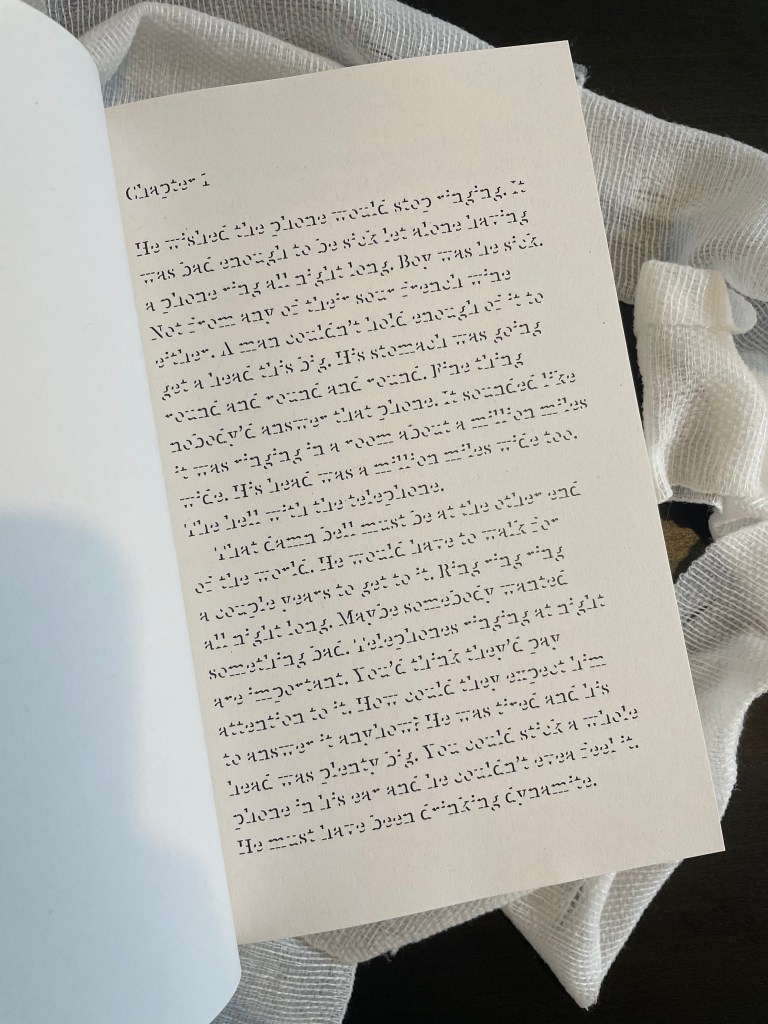 Chapter 1
He wished the phone would stop ringing. It
was bad enough to be sick let alone having
a phone ring all night long. Boy was he sick.
Not from any of their sour french wine
either. A man couldn't hold enough of it to
get a head this big. His stomach was going
round and round and round. Fine thing
nobody'd answer that phone. It sounded like
it was ringing in a room about a million miles
wide. His head was a million miles wide too.
The hell with the telephone.
That damn bell must be at the other end
of the world. He would have to walk for
a couple years to get to it. Ring ring ring
all night long. Maybe somebody wanted
something bad. Telephones ringing at night
are important. You'd think they'd pay
attention to it. How could they expect him
to answer it anyhow? He was tired and his
head was plenty big. You could stick a whole
phone in his ear and he couldn't even feel it.
He must have been drinking dynamite.